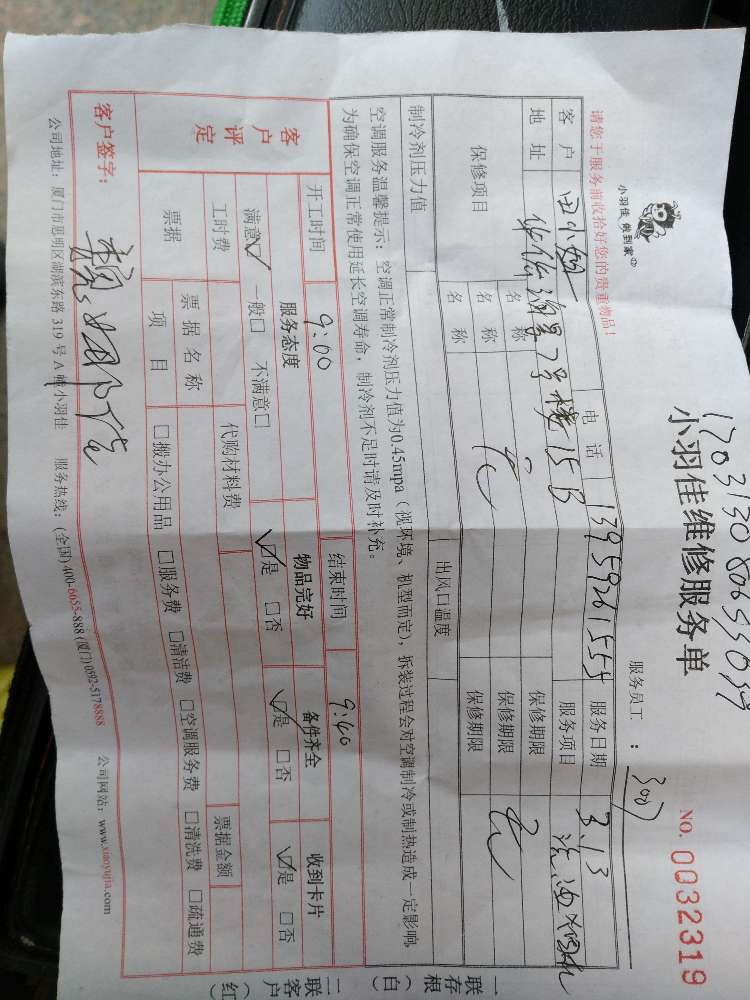 小羽佳 做到家
170313080653039
小羽佳维修服务单
NO. 0032319
请您于服务前收拾好您的贵重物品!
服务员工:
客户 电话 13959261555 服务日期 3.13
地址 7号楼15B 服务项目
保修项目 名称 保修期限
名称 无 保修期限 无
名称 保修期限
制冷剂压力值 出风口温度
空调服务温馨提示:空调正常制冷剂压力值为0.45mpa(视环境、机型而定),拆装过程会对空调制冷或制热造成一定影响,
为确保空调正常使用延长空调寿命,制冷剂不足时请及时补充。
客户评定
开工时间 9:00 结束时间 9:40
服务态度 物品完好 备件齐全 收到卡片
满意☑ 一般□ 不满意□ ☑是 □否 ☑是 □否 ☑是 □否
工时费 代购材料费 票据金额
票据 票据名称
项目 □搬办公用品 □服务费 □清洁费 □空调服务费 □清洗费 □疏通费
客户签字:
公司地址:厦门市思明区湖滨东路 319 号 A 幢小羽佳 服务热线:(全国) 400-6655-888 (厦门) 0592-5178888 公司网站:www.xiaoyujia.com
一联存根(白)
二联客户(红)